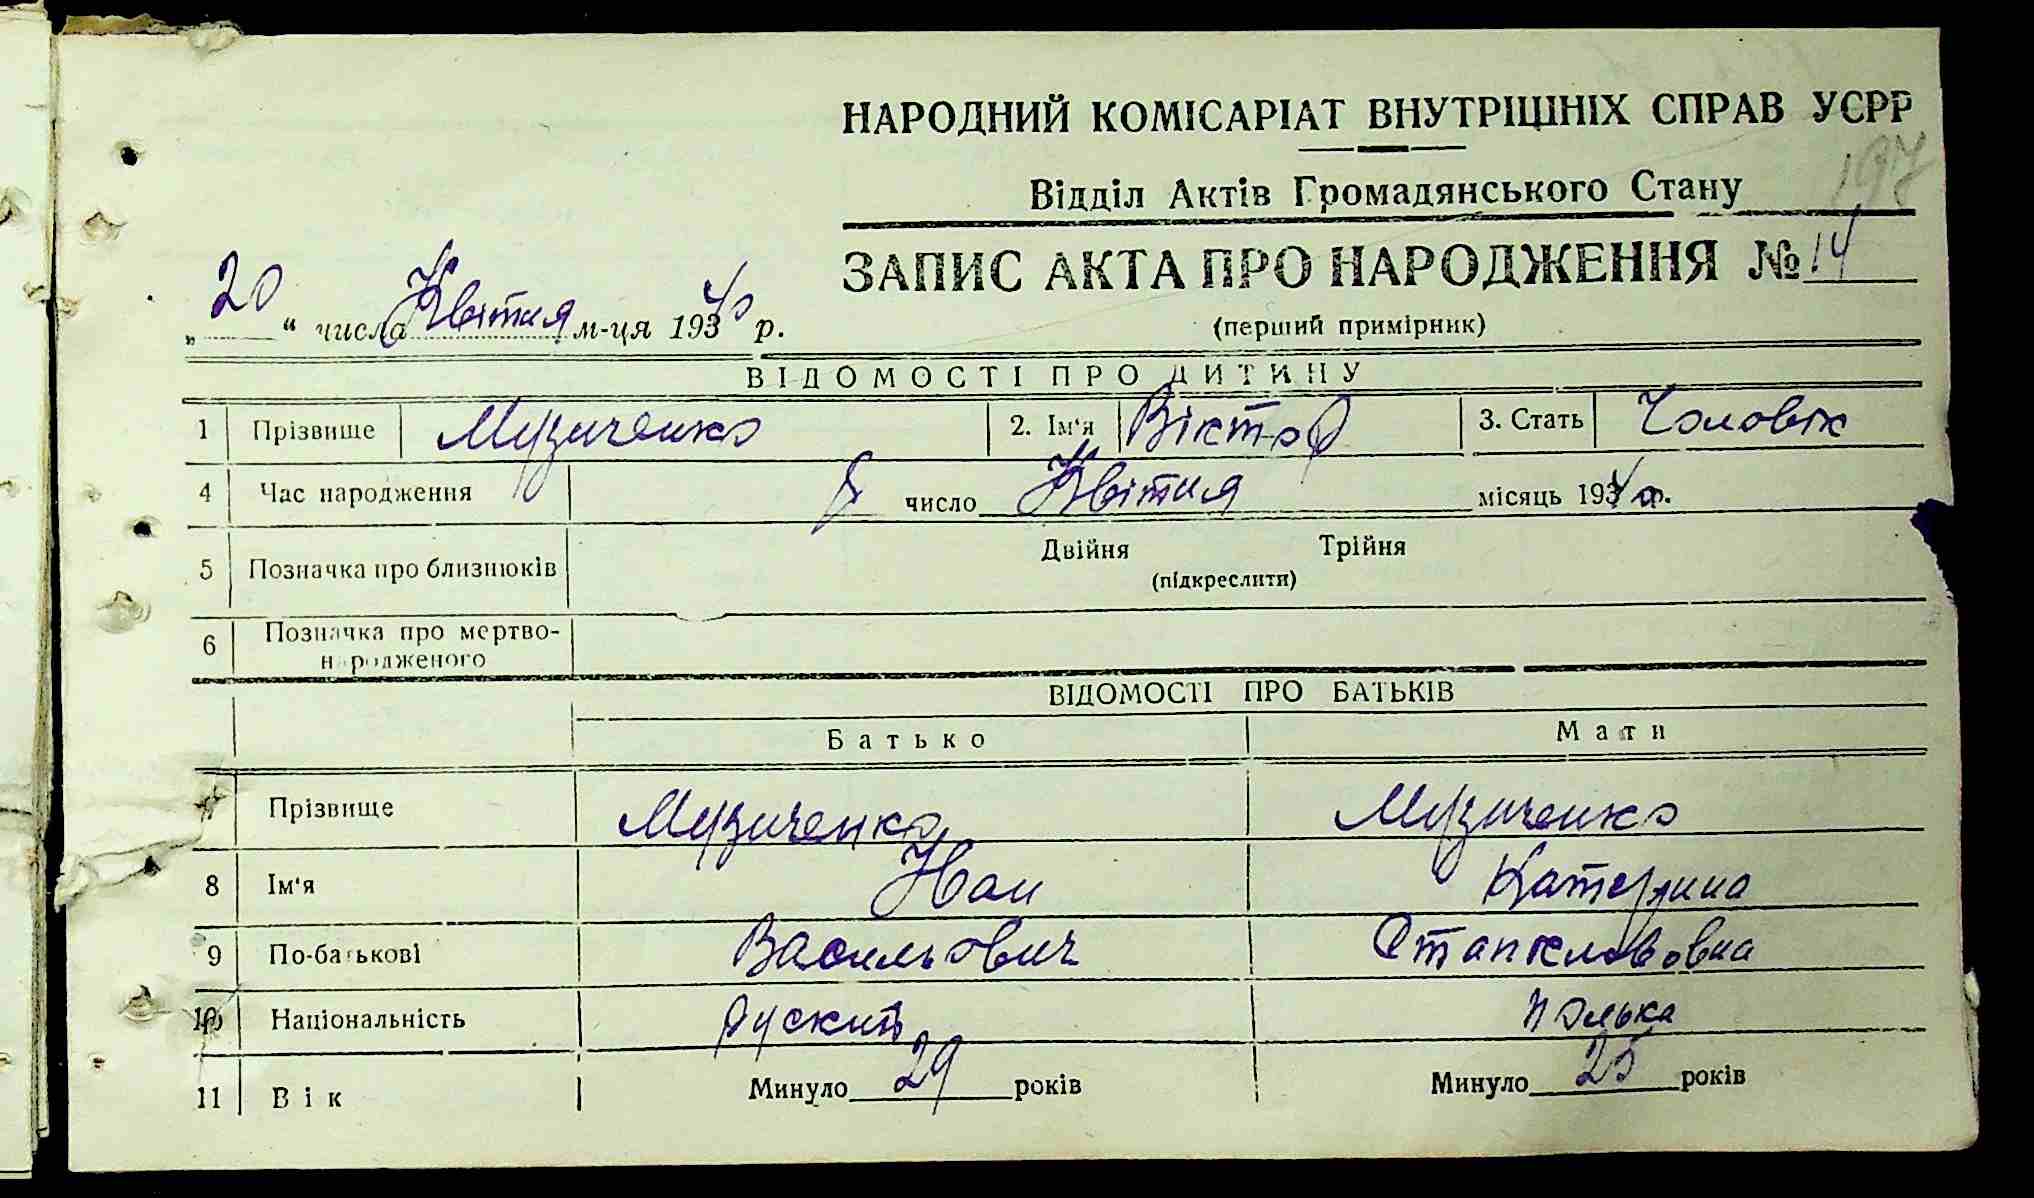 НАРОДНИЙ КОМІСАРІАТ ВНУТРІШНІХ СПРАВ УСРР
197
Відділ Актів Громадянського Стану
ЗАПИС АКТА ПРО НАРОДЖЕННЯ № 14
„20“ числа Квітня м-ця 1940 р.
(перший примірник)
ВІДОМОСТІ ПРО ДИТИНУ
1 Прізвище Музиченко 2. Ім'я Віктор 3. Стать Чоловік
4 Час народження 8 число Квітня місяць 1940 р.
5 Позначка про близнюків Двійня Трійня
(підкреслити)
6 Позначка про мертво-
народженого
ВІДОМОСТІ ПРО БАТЬКІВ
Батько Мати
7 Прізвище Музиченко Музиченко
8 Ім'я Іван Катерина
9 По-батькові Васильович Станіславовна
10 Національність руский полька
11 Вік Минуло 29 років Минуло 25 років